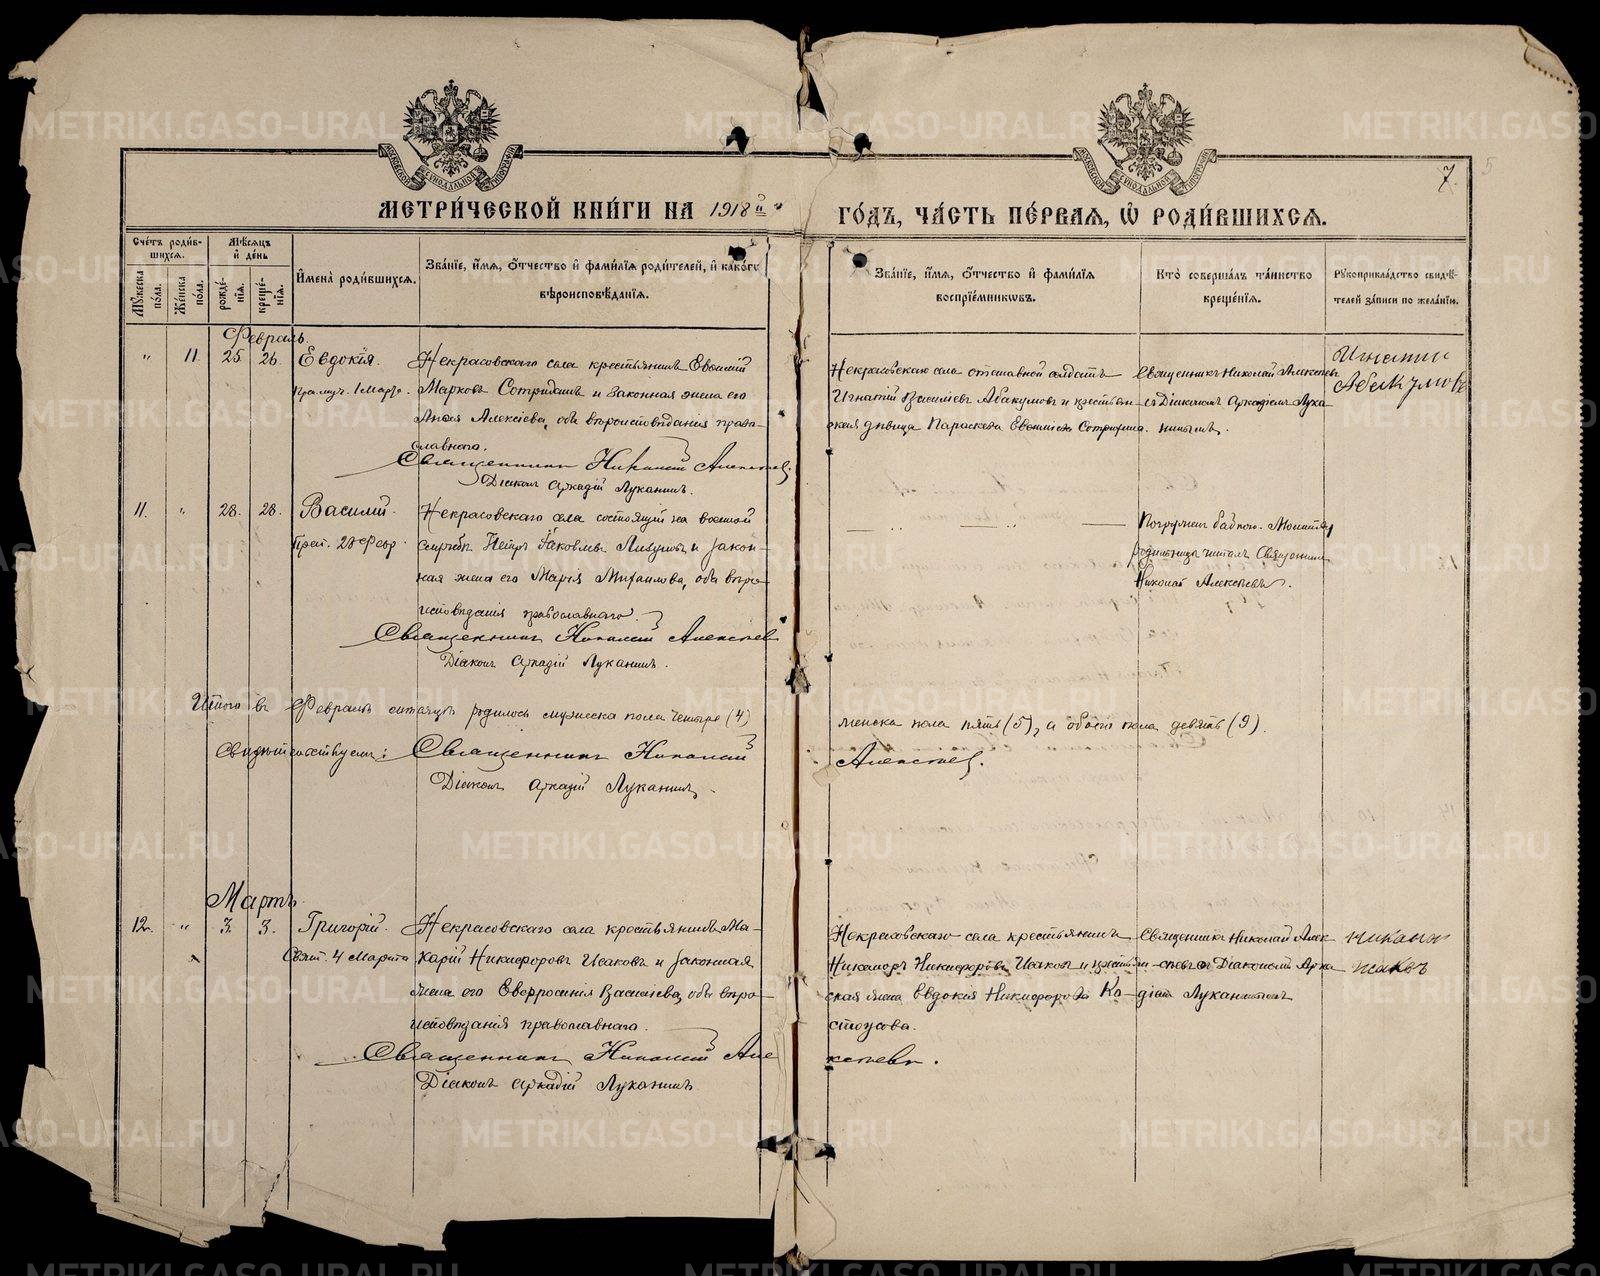 МЕТРИ́ЧЕСКОЙ КНИ́ГИ НА 1918й
ГО́ДЪ, ЧА́СТЬ ПЕ́РВАЯ, Ѡ РОДИ́ВШИХСЯ.
7.
5
Сче́тъ роди́в-
шихся.
Мѣ́сяцъ
и де́нь
Имена̀ роди́вшихся.
Зва́нїе, и́мя, о́тчество и фами́лїя роди́телей, и како́гѡ
вѣроисповѣ́данїя.
Зва́нїе, и́мя, о́тчество и фами́лїя
воспрїе́мникѡвъ.
Кто̀ соверша́лъ та́инство
креще́нїя.
Рꙋкоприкла́дство свидѣ́-
телей за́писи по жела́нїю.
Мꙋ́жеска
по́ла.
Же́нска
по́ла.
рожде́-
нїя.
креще́-
нїя.
Февраль.
" 11. 25 26. Евдокія.
1 Марта.
Некрасовскаго села крестьянинъ Евѳимій
Марковъ и законная жена его
Алексѣева, оба вѣроисповѣданія право-
славнаго.
Священникъ Николай Алексѣев.
Діаконъ Аркадій Луканинъ.
Некрасовскаго села отставной солдатъ
Игнатій Васильевъ Абакумовъ и крестьян-
ская дѣвица Параскева Евѳиміева
Священникъ Николай Алексѣевъ
съ Діакономъ Аркадіемъ Лука-
нинымъ.
Игнатий
Абакумовъ
11. " 28. 28. Василій.
28 Февр.
Некрасовскаго села состоящій на военной
службѣ Петръ Іаковлевъ и закон-
ная жена его Марія Михаилова, оба вѣро-
исповѣданія православнаго.
Священникъ Николай Алексѣев
Діаконъ Аркадій Луканинъ.
Погруженъ бабкою. Молитву
родильницѣ читалъ Священникъ
Николай Алексѣевъ.
Итого въ Февралѣ мѣсяцѣ родилось мужеска пола четыре (4)
женска пола пять (5), а обоего пола девять (9).
Свидѣтельствуемъ: Священникъ Николай
Алексѣев.
Діаконъ Аркадій Луканинъ.
Мартъ.
12. " 3. 3. Григорій.
4 Марта
Некрасовскаго села крестьянинъ Ма-
карій Никифоровъ Исаковъ и законная
жена его Евфросинія Васильева, оба вѣро-
исповѣданія православнаго.
Священникъ Николай Але
ксѣевъ.
Діаконъ Аркадій Луканинъ.
Некрасовскаго села крестьянинъ
Никаноръ Никифоровъ Исаковъ и крестьян-
ская жена Евдокія Никифорова Ко-
стоусова.
Священникъ Николай Алек-
сѣевъ съ Діакономъ Арка-
діемъ Луканинымъ
Никанор
Исаковъ
METRIKI.GASO-URAL.RU